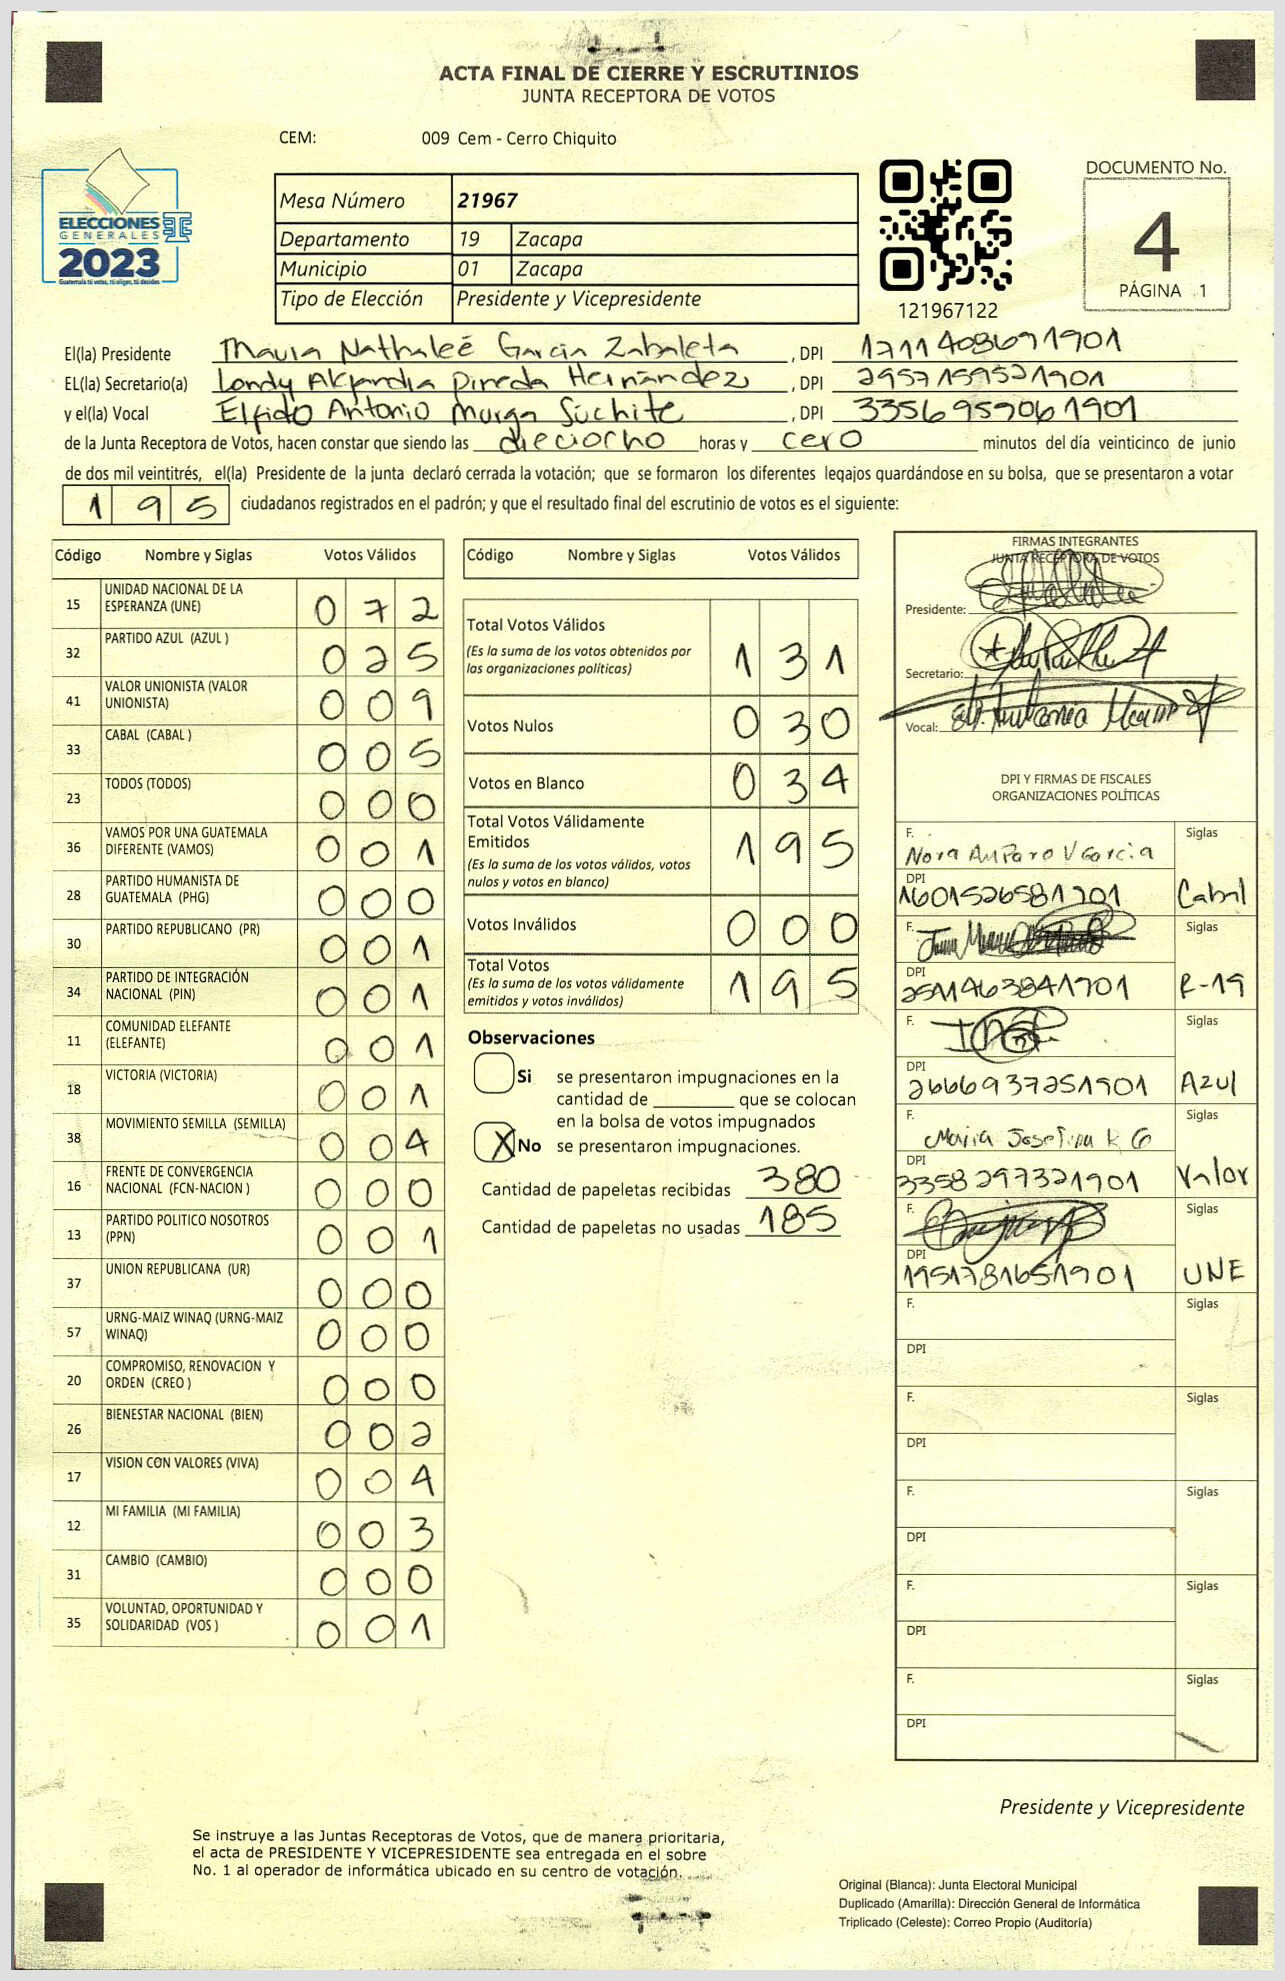 ACTA FINAL DE CIERRE Y ESCRUTINIOS
JUNTA RECEPTORA DE VOTOS
CEM: 009 Cem - Cerro Chiquito
ELECCIONES
GENERALES
2023
Guatemala tú votas, tú eliges, tú decides
Mesa Número 21967
Departamento 19 Zacapa
Municipio 01 Zacapa
Tipo de Elección Presidente y Vicepresidente
121967122
DOCUMENTO No.
4
PÁGINA 1
El(la) Presidente Nathaleé Garcia Zabaleta , DPI
EL(la) Secretario(a) Pineda Hernández , DPI 2957159521901
y el(la) Vocal Elfido Antonio Murga Súchite , DPI 3356959061901
de la Junta Receptora de Votos, hacen constar que siendo las dieciocho horas y cero minutos del día veinticinco de junio
de dos mil veintitrés, el(la) Presidente de la junta declaró cerrada la votación; que se formaron los diferentes legajos guardándose en su bolsa, que se presentaron a votar
195 ciudadanos registrados en el padrón; y que el resultado final del escrutinio de votos es el siguiente:
Código Nombre y Siglas Votos Válidos
15 UNIDAD NACIONAL DE LA ESPERANZA (UNE) 072
32 PARTIDO AZUL (AZUL ) 025
41 VALOR UNIONISTA (VALOR UNIONISTA) 009
33 CABAL (CABAL ) 005
23 TODOS (TODOS) 000
36 VAMOS POR UNA GUATEMALA DIFERENTE (VAMOS) 001
28 PARTIDO HUMANISTA DE GUATEMALA (PHG) 000
30 PARTIDO REPUBLICANO (PR) 001
34 PARTIDO DE INTEGRACIÓN NACIONAL (PIN) 001
11 COMUNIDAD ELEFANTE (ELEFANTE) 001
18 VICTORIA (VICTORIA) 001
38 MOVIMIENTO SEMILLA (SEMILLA) 004
16 FRENTE DE CONVERGENCIA NACIONAL (FCN-NACION ) 000
13 PARTIDO POLITICO NOSOTROS (PPN) 001
37 UNION REPUBLICANA (UR) 000
57 URNG-MAIZ WINAQ (URNG-MAIZ WINAQ) 000
20 COMPROMISO, RENOVACION Y ORDEN (CREO ) 000
26 BIENESTAR NACIONAL (BIEN) 002
17 VISION CON VALORES (VIVA) 004
12 MI FAMILIA (MI FAMILIA) 003
31 CAMBIO (CAMBIO) 000
35 VOLUNTAD, OPORTUNIDAD Y SOLIDARIDAD (VOS ) 001
Código Nombre y Siglas Votos Válidos
Total Votos Válidos 131
(Es la suma de los votos obtenidos por
las organizaciones políticas)
Votos Nulos 030
Votos en Blanco 034
Total Votos Válidamente
Emitidos 195
(Es la suma de los votos válidos, votos
nulos y votos en blanco)
Votos Inválidos 000
Total Votos 195
(Es la suma de los votos válidamente
emitidos y votos inválidos)
Observaciones
Si se presentaron impugnaciones en la
cantidad de ________ que se colocan
en la bolsa de votos impugnados
X No se presentaron impugnaciones.
Cantidad de papeletas recibidas 380
Cantidad de papeletas no usadas 185
FIRMAS INTEGRANTES
JUNTA RECEPTORA DE VOTOS
Presidente:
Secretario:
Vocal:
DPI Y FIRMAS DE FISCALES
ORGANIZACIONES POLÍTICAS
F. Nora Amparo V Garcia Siglas
DPI
F. Siglas
DPI 2511463841901 R-19
F. Siglas
DPI 2666937251901 Azul
F. Maria Josefina R G Siglas
DPI 3358297321901 Valor
F. Siglas
DPI 1951781651901 UNE
F. Siglas
DPI
F. Siglas
DPI
F. Siglas
DPI
F. Siglas
DPI
F. Siglas
DPI
Presidente y Vicepresidente
Se instruye a las Juntas Receptoras de Votos, que de manera prioritaria,
el acta de PRESIDENTE Y VICEPRESIDENTE sea entregada en el sobre
No. 1 al operador de informática ubicado en su centro de votación.
Original (Blanca): Junta Electoral Municipal
Duplicado (Amarilla): Dirección General de Informática
Triplicado (Celeste): Correo Propio (Auditoría)